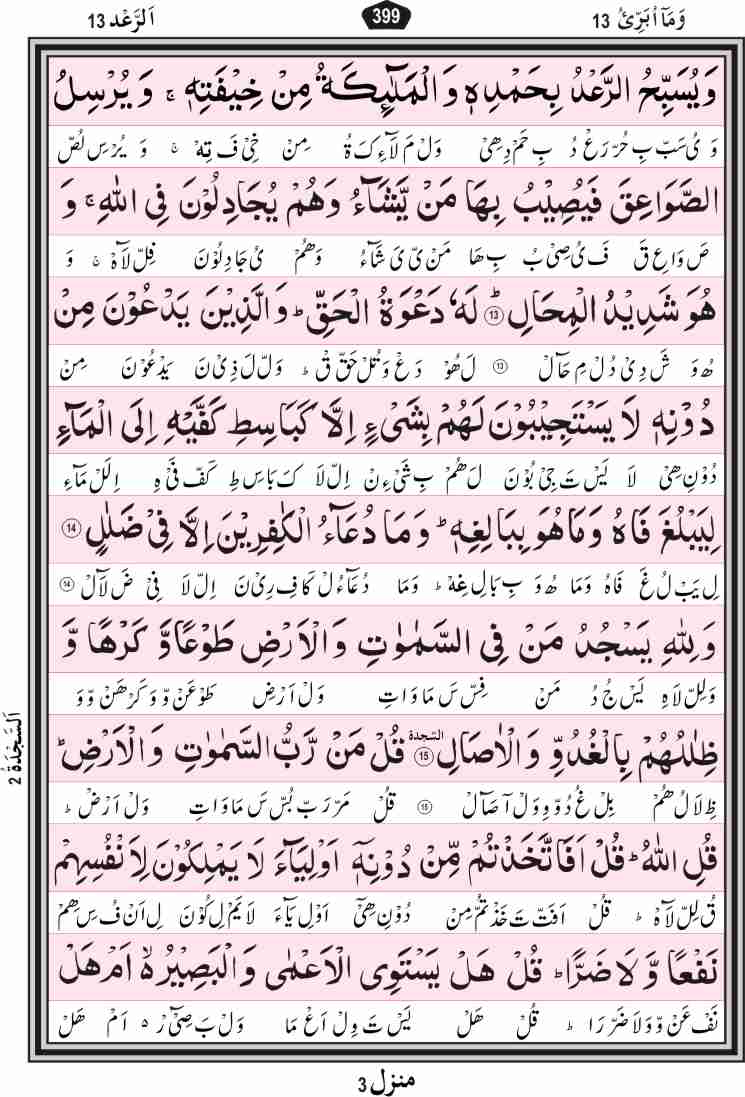 وَمَآ اُبَرِّئُ 13
399
اَلرَّعْد 13
وَيُسَبِّحُ الرَّعْدُ بِحَمْدِهٖ وَالْمَلٰٓئِكَةُ مِنْ خِيْفَتِهٖ ۚ وَيُرْسِلُ
وَ يُ سَبّ بِ حُرّ رَعْ دُ بِ حَمْ دِهِىْ وَلْ مَ لَآءِ كَ ةُ مِنْ خِىْ فَ تِهْ ۚ وَ يُرْ سِ لُصّ
الصَّوَاعِقَ فَيُصِيْبُ بِهَا مَنْ يَّشَآءُ وَهُمْ يُجَادِلُوْنَ فِى اللّٰهِ ۚ وَ
صَ وَاعِ قَ فَ يُ صِىْ بُ بِ هَا مَنْ ىّ يَ شَآءُ وَهُمْ يُ جَادِلُوْنَ فِلّ لَاهْ ۚ وَ
هُوَ شَدِيْدُ الْمِحَالِ ؕ 13 لَهٗ دَعْوَةُ الْحَقِّ ؕ وَالَّذِيْنَ يَدْعُوْنَ مِنْ
هُ وَ شَ دِىْ دُلْ مِ حَآلْ 13 لَ هُوْ دَعْ وَ تُلْ حَقّ قْ ؕ وَلّ لَ ذِىْ نَ يَدْعُوْنَ مِنْ
دُوْنِهٖ لَا يَسْتَجِيْبُوْنَ لَهُمْ بِشَىْءٍ اِلَّا كَبَاسِطِ كَفَّيْهِ اِلَى الْمَآءِ
دُوْنِ هِىْ لَا يَسْ تَ جِىْ بُوْنَ لَ هُمْ بِ شَىْءِنْ اِلّ لَا كَ بَاسِ طِ كَفّ فَىْ هِ اِلَلْ مَآءِ
لِيَبْلُغَ فَاهُ وَمَا هُوَ بِبَالِغِهٖ ؕ وَمَا دُعَآءُ الْكٰفِرِيْنَ اِلَّا فِىْ ضَلٰلٍ 14
لِ يَبْ لُ غَ فَاهُ وَمَا هُ وَ بِ بَالِ غِهْ ؕ وَمَا دُعَآءُ لْ كَافِ رِىْ نَ اِلّ لَا فِىْ ضَ لَآلْ 14
وَلِلّٰهِ يَسْجُدُ مَنْ فِى السَّمٰوٰتِ وَالْاَرْضِ طَوْعًا وَّ كَرْهًا وَّ
وَلِلّ لَاهِ يَسْ جُ دُ مَنْ فِسّ سَ مَاوَاتِ وَلْ اَرْضِ طَوْعَنْ وّ وَ كَرْهَنْ وّ وَ
ظِلٰلُهُمْ بِالْغُدُوِّ وَالْاٰصَالِ السجدة 15 قُلْ مَنْ رَّبُّ السَّمٰوٰتِ وَالْاَرْضِ ؕ
ظِ لَالُ هُمْ بِلْ غُ دُوّ وِ وَلْ آ صَآلْ 15 قُلْ مَرّ رَبّ بُسّ سَ مَاوَاتِ وَلْ اَرْضْ ؕ
قُلِ اللّٰهُ ؕ قُلْ اَفَاتَّخَذْتُمْ مِّنْ دُوْنِهٖۤ اَوْلِيَآءَ لَا يَمْلِكُوْنَ لِاَنْفُسِهِمْ
قُ لِلّ لَآهْ ؕ قُلْ اَفَتّ تَ خَذْ تُمّ مِنْ دُوْنِ هِىْٓ اَوْلِ يَآءَ لَا يَمْ لِ كُوْنَ لِ اَنْ فُ سِ هِمْ
نَفْعًا وَّ لَا ضَرًّا ؕ قُلْ هَلْ يَسْتَوِى الْاَعْمٰى وَالْبَصِيْرُ ۙ اَمْ هَلْ
نَفْ عَنْ وّ وَلَا ضَرّ رَا ؕ قُلْ هَلْ يَسْ تَ وِلْ اَعْ مَا وَلْ بَ صِىْٓ رْ ۙ اَمْ هَلْ
اَلسَّجْدَةُ 2
منزل 3